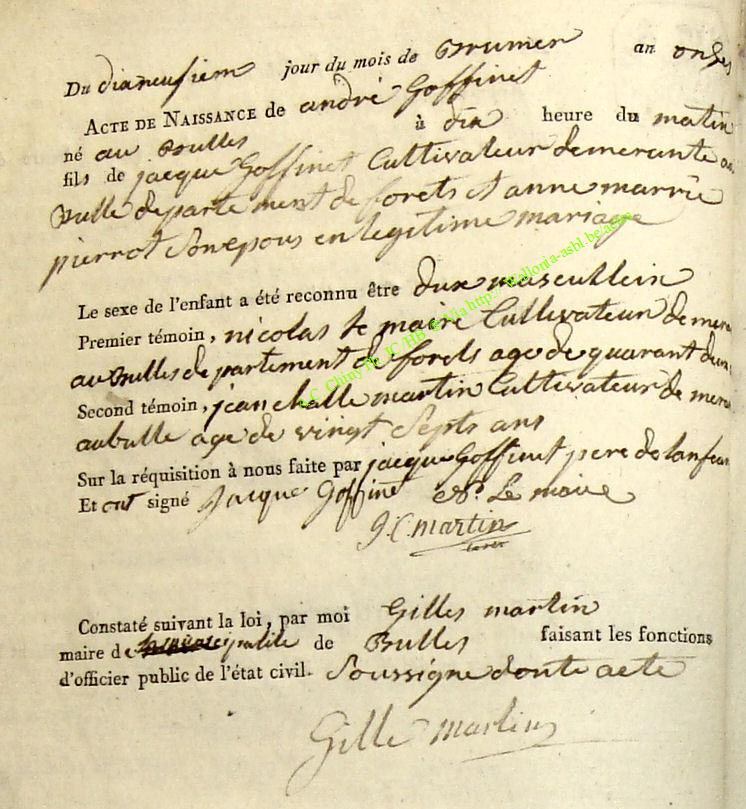 Du dianeufiem jour du mois de Brumer an onze
ACTE DE NAISSANCE de andré Goffinet
né au Bulles à dix heure du matin
fils de jacque Goffinet Cultivateur demerante au
Bulle departement de forets et anne marrie
pierrot Son epous en legitime mariage
Le sexe de l'enfant a été reconnu être dux mascullein
Premier témoin, nicolas le maire Cultivateur de mera
au Bulles departement de forets age de quarant deux
Second témoin, jean challe martin Cultivateur de mera
au bulle age de vingt Septs ans
Sur la réquisition à nous faite par jacque Goffinet pere de lanfan
Et ont signé Jacque Goffinet N. Le maire
J.C. martin
Constaté suivant la loi, par moi Gilles martin
maire de municipalite de Bulles faisant les fonctions
d'officier public de l'état civil. Soussigne dont acte
Gille martin